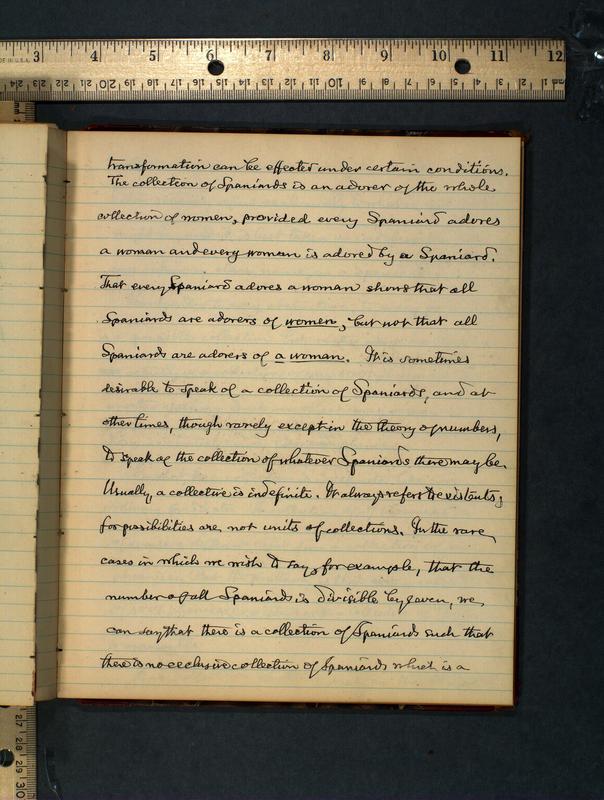 3 4 5 6 7 8 9 10 11 12
transformation can be effected under certain conditions.
The collection of Spaniards is an adorer of the whole
collection of women, provided every Spaniard adores
a woman and every woman is adored by a Spaniard.
That every Spaniard adores a woman shows that all
Spaniards are adorers of women, but not that all
Spaniards are adorers of a woman. It is sometimes
desirable to speak of a collection of Spaniards, and at
other times, though rarely except in the theory of numbers,
to speak of the collection of whatever Spaniards there may be.
Usually, a collective is indefinite. It always refers to existents;
for possibilities are not units of collections. In the rare
cases in which we wish to say, for example, that the
number of all Spaniards is divisible by seven, we
can say that there is a collection of Spaniards such that
there is no exclusive collection of Spaniards which is a
27 28 29 30